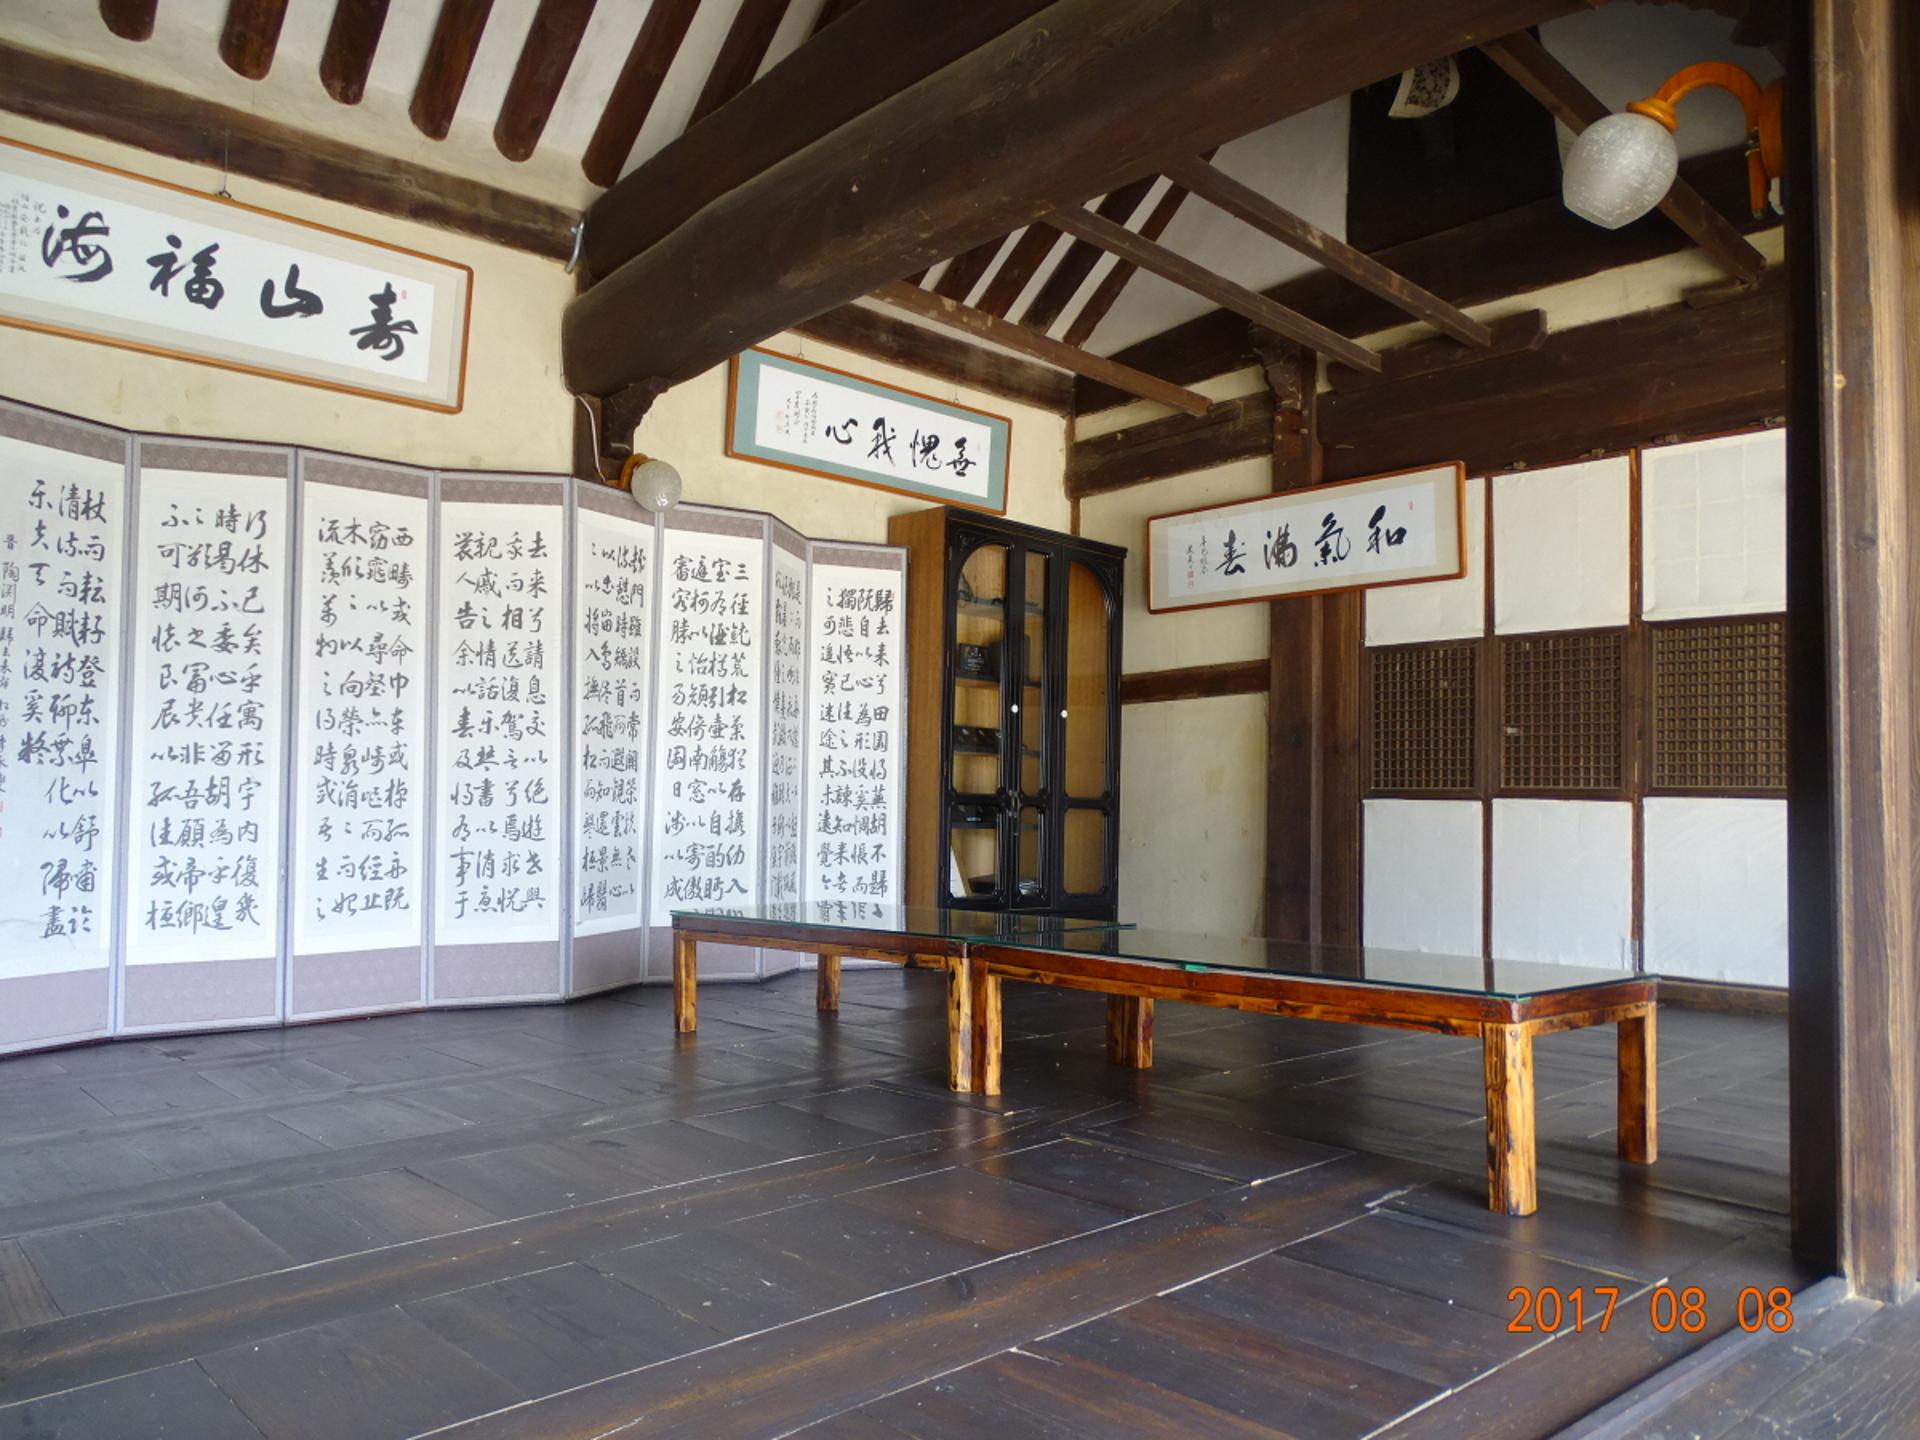 寿山福海
無愧我心
和氣滿春
歸去来兮田園将蕪胡不歸
自以心為形役奚惆悵而
獨悲悟已往之不諫知来者
之可追寔迷途其未遠覺今
三徑就荒松菊猶存攜幼入
室有酒樽引壺觴以自酌眄
庭柯以怡顔倚南窓以寄傲
審容膝之易安園日涉以成
趣門雖設而常關策扶老以
流憩時矯首而遐觀雲無心
以出岫鳥倦飛而知還景翳
〻以将入撫孤松而盤桓歸
去来兮請息交以絶遊世與
我而相遺復駕言兮焉求悦
親戚之情話樂琴書以消憂
農人告余以春及将有事于
西疇或命巾車或棹孤舟既
窈窕以尋壑亦崎嶇而經丘
木欣〻以向榮泉涓〻而始
流羨萬物之得時感吾生之
行休已矣乎寓形宇内復幾
時曷不委心任留胡為乎遑
〻欲何之富貴非吾願帝鄉
不可期懷良辰以孤往或植
杖而耘耔登東皐以舒嘯臨
清流而賦詩聊乗化以歸盡
樂夫天命復奚疑
晉陶淵明歸去来辭
2017 08 08